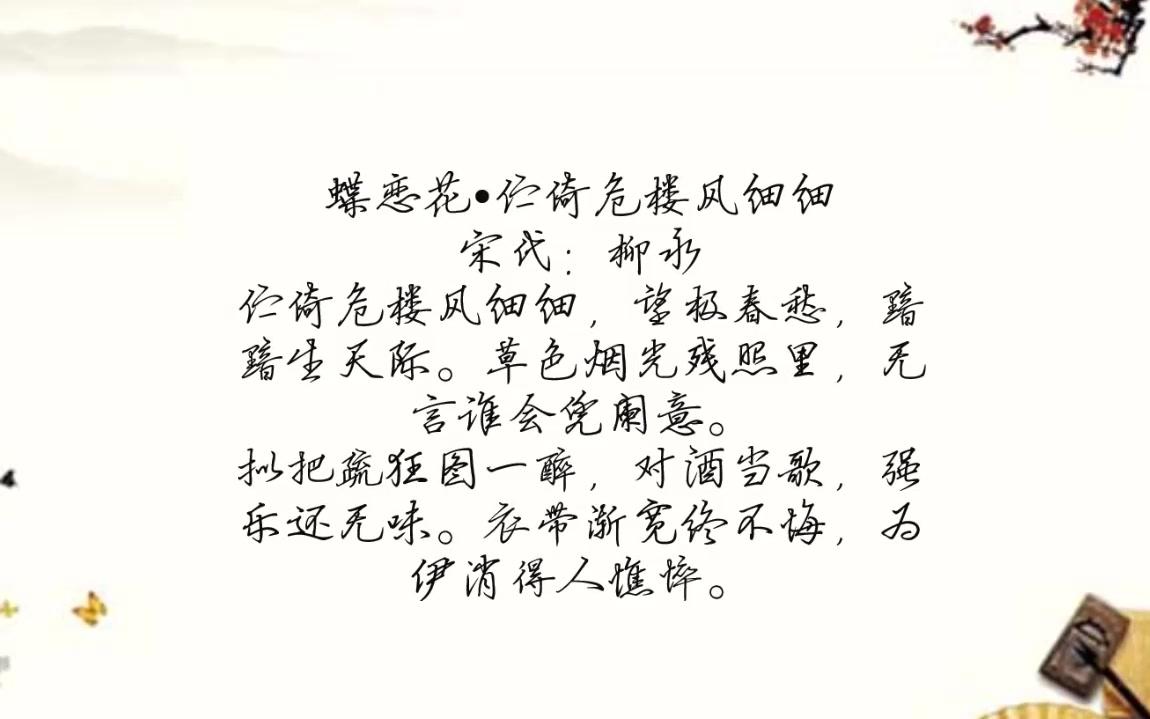 蝶恋花•伫倚危楼风细细
宋代：柳永
伫倚危楼风细细，望极春愁，黯
黯生天际。草色烟光残照里，无
言谁会凭阑意。
拟把疏狂图一醉，对酒当歌，强
乐还无味。衣带渐宽终不悔，为
伊消得人憔悴。